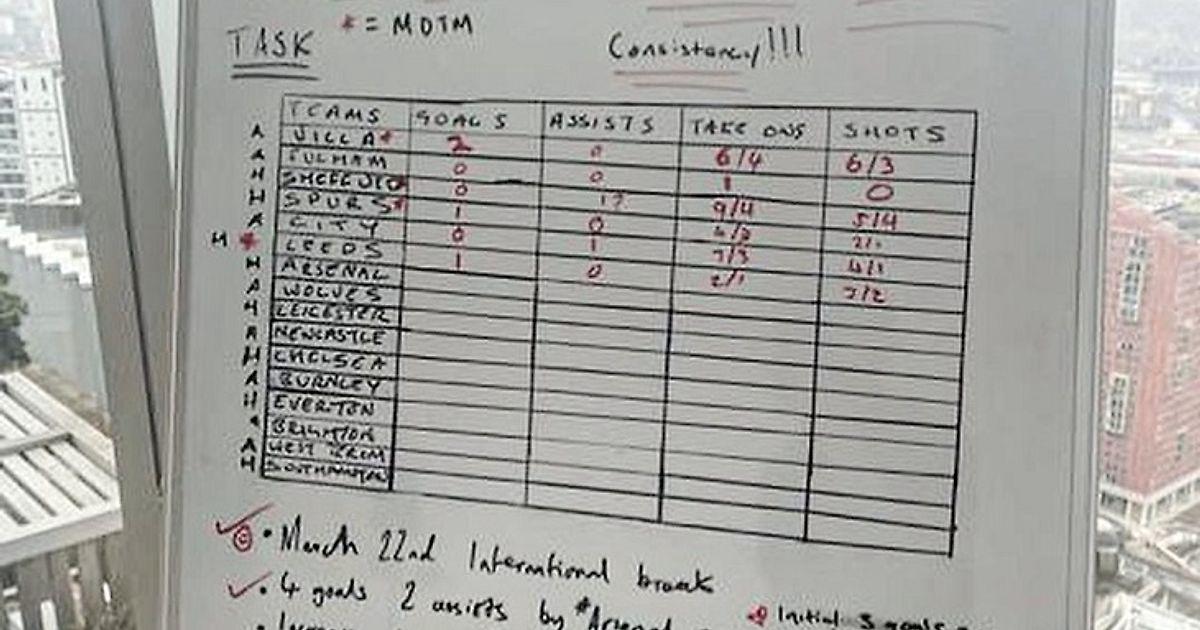 * = MOTM
TASK
Consistancy!!!
TEAMS GOALS ASSISTS TAKE ONS SHOTS
A VILLA* 2 0 6/4 6/3
A FULHAM 0 0 1 0
H SHEFF UTD 0 1? 9/4 5/4
H SPURS* 1 0
A CITY 0 1
H * LEEDS 1 0 2/1 4/1
H ARSENAL 2/2
A WOLVES
H LEICESTER
A NEWCASTLE
H CHELSEA
A BURNLEY
H EVERTON
BRIGHTON
A WEST BROM
H SOUTHAMPTON
• March 22nd International break
• 4 goals 2 assists by *Arsenal
Initial 5 goals